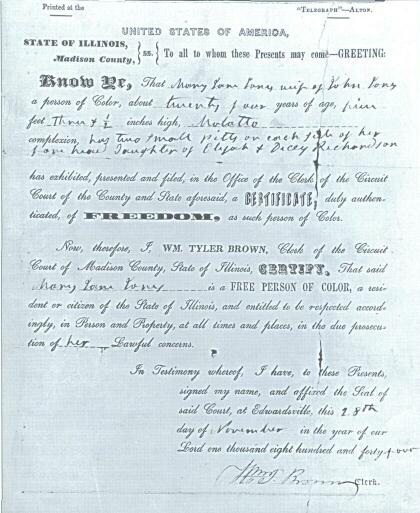 Printed at the "TELEGRAPH"—ALTON.
UNITED STATES OF AMERICA,
STATE OF ILLINOIS, } ss. To all to whom these Presents may come—GREETING:
Madison County,
Know Ye, That Mary Jane Jones wife of John Jones
a person of Color, about twenty four years of age, five
feet Three & ½ inches high, Molatto
complexion, has two small pitts on each side of her
fore head Daughter of Elijah & Diccy Richardson
has exhibited, presented and filed, in the Office of the Clerk of the Circuit
Court of the County and State aforesaid, a CERTIFICATE, duly authen-
ticated, of FREEDOM, as such person of Color.
Now, therefore, I, WM. TYLER BROWN, Clerk of the Circuit
Court of Madison County, State of Illinois, CERTIFY, That said
Mary Jane Jones is a FREE PERSON OF COLOR, a resi-
dent or citizen of the State of Illinois, and entitled to be respected accord-
ingly, in Person and Property, at all times and places, in the due prosecu-
tion of her Lawful concerns.
In Testimony whereof, I have, to these Presents,
signed my name, and affixed the Seal of
said Court, at Edwardsville, this 28th
day of November in the year of our
Lord one thousand eight hundred and forty four
Wm. T. Brown Clerk.